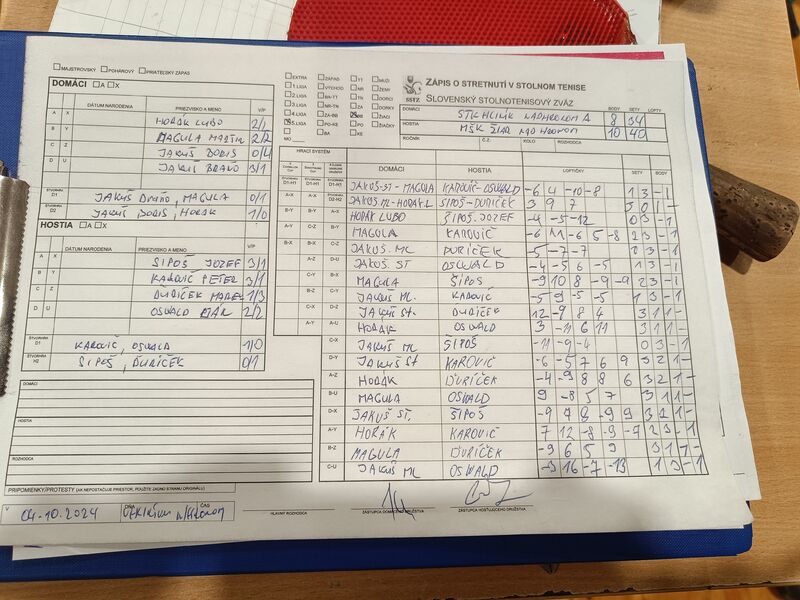 MAJSTROVSKÝ POHÁROVÝ PRIATEĽSKÝ ZÁPAS
DOMÁCI A X
DÁTUM NARODENIA PRIEZVISKO A MENO V/P
A X HORÁK ĽUBO 2/2
B Y MAGULA MARTIN 2/2
C Z JAKUŠ BORIS 0/4
D U JAKUŠ BRAŇO 3/1
ŠTVORHRA D1 JAKUŠ BRAŇO, MAGULA 0/1
D2 JAKUŠ BORIS, HORÁK 1/0
HOSTIA A X
DÁTUM NARODENIA PRIEZVISKO A MENO V/P
A X ŠIPOŠ JOZEF 3/1
B Y KAROVIČ PETER 3/1
C Z ĎURÍČEK MAREK 1/3
D U OSWALD 2/2
ŠTVORHRA D1 KAROVIČ, OSWALD 1/0
ŠTVORHRA H2 ŠIPOŠ, ĎURÍČEK 0/1
DOMÁCI
HOSTIA
ROZHODCA
PRIPOMIENKY/PROTESTY (AK NEPOSTAČUJE PRIESTOR, POUŽITE ZADNÚ STRANU ORIGINÁLU)
V 04.10.2024 DŇA ČAS
EXTRA ZÁPAS TT MUŽI
1.LIGA VÝCHOD NR ŽENY
2.LIGA BA-TT TN DORCI
3.LIGA NR-TN ZA DORKY
4.LIGA ZA-BB BB ŽIACI
5.LIGA PO-KE PO ŽIAČKY
MO KE
SSTZ
ZÁPIS O STRETNUTÍ V STOLNOM TENISE
SLOVENSKÝ STOLNOTENISOVÝ ZVÄZ
BODY SETY LOPTY
DOMÁCI NAD HRONOM A 8 34
HOSTIA MŠK ŽIAR NAD HRONOM 10 40
ROČNÍK Č.Z. KOLO ROZHODCA
HRACÍ SYSTÉM
DOMÁCI HOSTIA LOPTIČKY SETY BODY
D1-H1 D1-H1 D1-H1 JAKUŠ.ST - MAGULA KAROVIČ-OSWALD -6 4 -10 -8 1 3 - 1
A-X A-X D2-H2 JAKUŠ.ML-HORÁK.L ŠIPOŠ-ĎURÍČEK 3 9 7 3 0 1 -
B-Y B-Y A-X HORÁK ĽUBO ŠIPOŠ JOZEF -4 -5 -12 0 3 - 1
A-Y C-Z B-Y MAGULA KAROVIČ -6 11 -6 5 -8 2 3 - 1
B-X A-X C-Z JAKUŠ. ML ĎURÍČEK -5 -7 -7 0 3 - 1
A-Z D-U JAKUŠ. ST OSWALD -4 -5 6 -5 1 3 - 1
C-Y B-X MAGULA ŠIPOŠ -9 10 8 -9 -9 2 3 - 1
B-Z C-Y JAKUŠ ML. KAROVIČ -5 9 -5 -5 1 3 - 1
C-X D-Z JAKUŠ St. ĎURÍČEK 12 -9 8 4 3 1 1 -
A-Y A-U HORÁK OSWALD 3 -11 6 11 3 1 1 -
C-X JAKUŠ ML ŠIPOŠ -11 -9 -4 0 3 - 1
D-Y JAKUŠ St KAROVIČ -6 -5 7 6 9 3 2 1 -
A-Z HORÁK ĎURÍČEK -4 -9 8 8 6 3 2 1 -
B-U MAGULA OSWALD 9 -8 5 7 3 1 1 -
D-X JAKUŠ ST. ŠIPOŠ -9 7 8 -9 9 3 2 1 -
A-Y HORÁK KAROVIČ 7 12 -8 -9 -7 2 3 - 1
B-Z MAGULA ĎURÍČEK -9 6 5 9 3 1 1 -
C-U JAKUŠ ML OSWALD -9 16 -7 -13 1 3 - 1
HLAVNÝ ROZHODCA ZÁSTUPCA DOMÁCEHO DRUŽSTVA ZÁSTUPCA HOSŤUJÚCEHO DRUŽSTVA